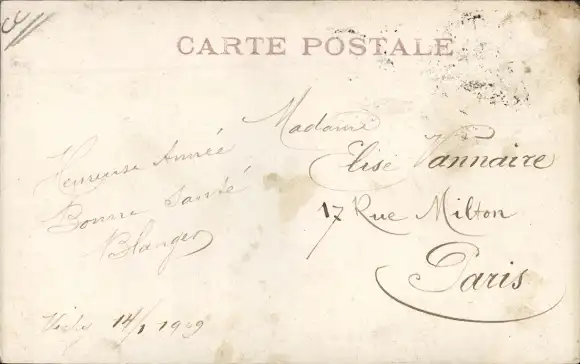 CARTE POSTALE
Heureuse Année
Bonne Santé
Blanger
Vichy 14/1 1909
Madame
Elise Vannaire
17 Rue Milton
Paris